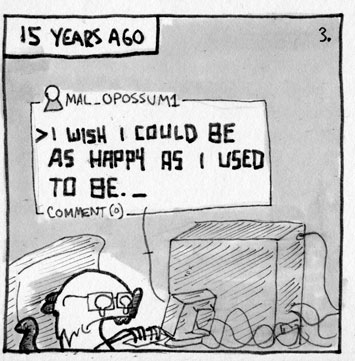 15 YEARS AGO
3.
MAL_OPOSSUM1
>I WISH I COULD BE
AS HAPPY AS I USED
TO BE._
COMMENT(0)